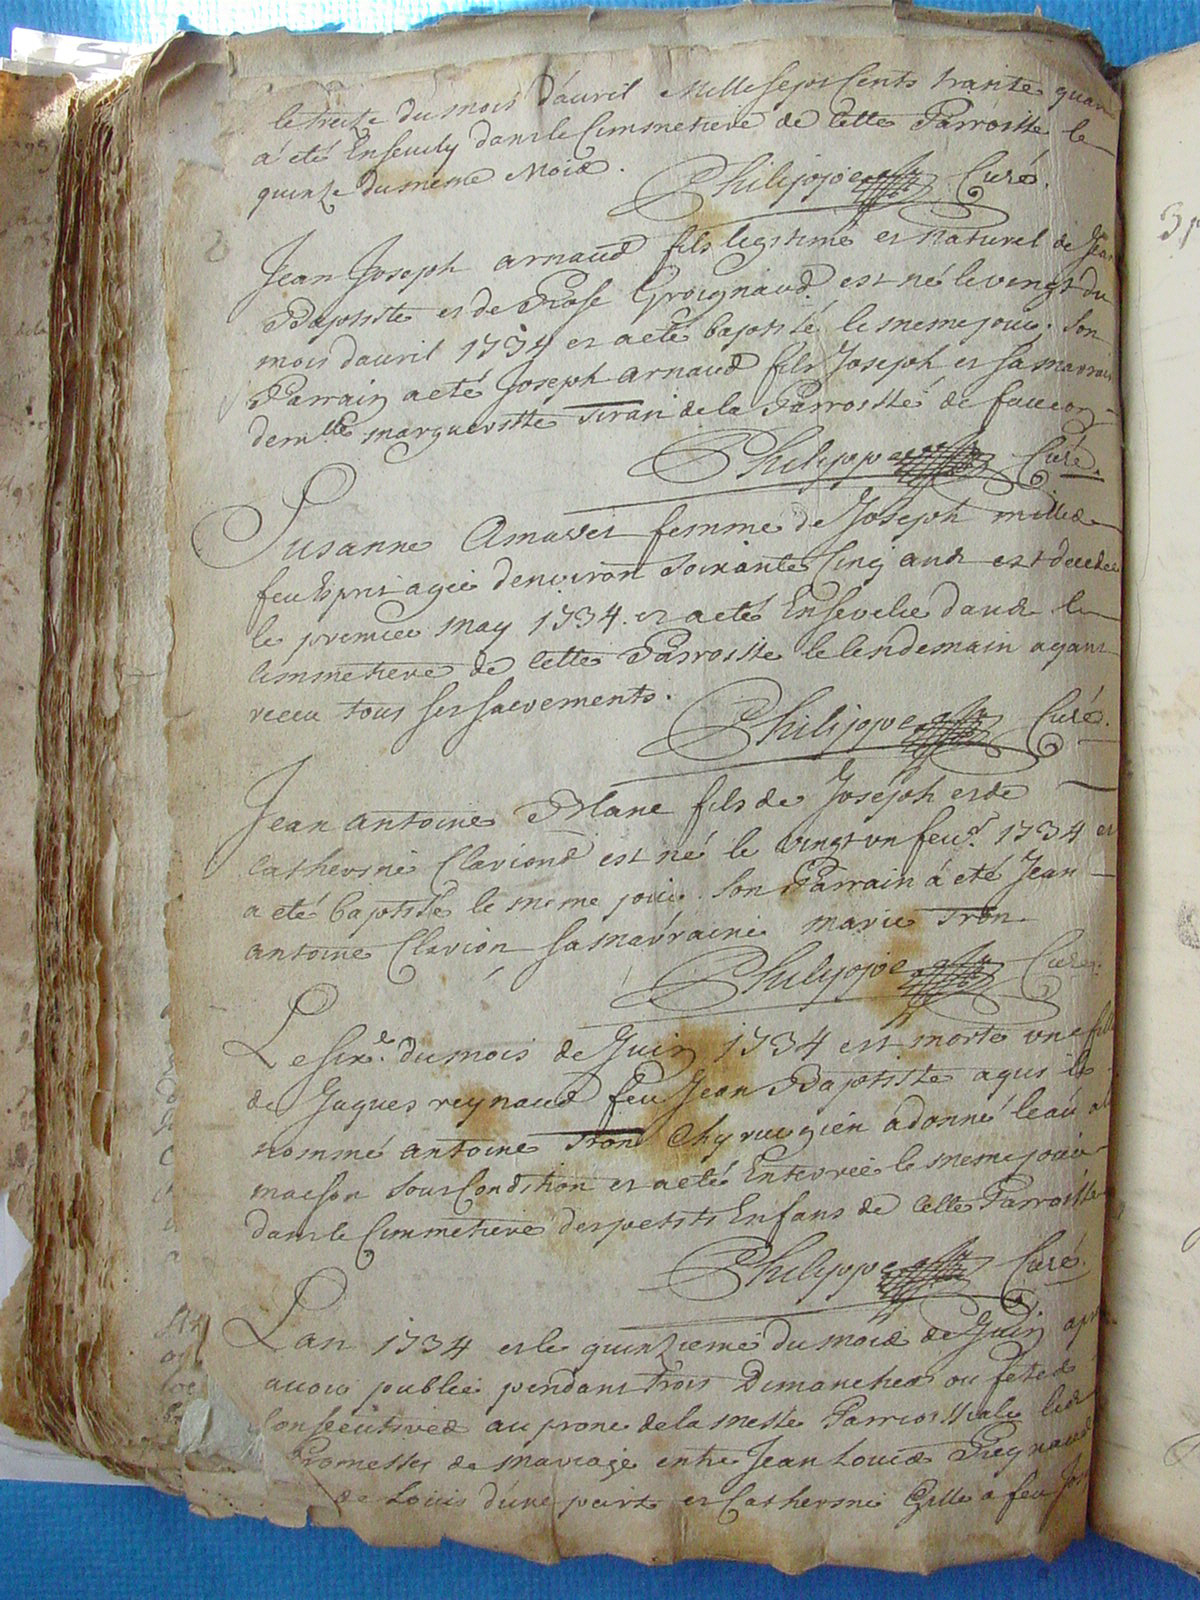 le treize du mois d'avril Mille sept Cents trante quatre
a été Enseuely dans le Cimmetiere de Cette Parroisse le
quinze du meme Mois.
Philippe Curé.
Jean Joseph arnaud fils legitime et naturel de Jean
Baptiste et de Rose Groignaud est né le vingt du
mois d'avril 1734 et a eté baptisé le meme jour. Son
Parrain a eté Joseph arnaud fils Joseph et sa marraine
demlle margueritte Tiran de la Parroisse de faucon
Philippe Curé.
Susanne femme de Joseph
feu Esprit agée d'environ soixante Cinq ans est decedee
le premier may 1734. et a eté Ensevelie dans le
Cimmetiere de Cette Parroisse le lendemain ayant
receu tous ses sacrements.
Philippe Curé.
Jean antoine fils de Joseph et de
Catherine Clariond est né le vingt un feur. 1734 et
a eté baptisé le meme jour. Son Parrain á eté Jean
antoine Clarion sa marraine marie Tron
Philippe Curé.
Le du mois de Juin 1734 est morte une fille
de Jaques reynaud feu Jean Baptiste a qui le
nommé antoine Tron Chyrurgien a donné leau a la
maison sous Condition et a eté Enterrée le meme jour
dans le Cimmetiere des petits Enfans de Cette Parroisse
Philippe Curé.
Lan 1734 et le quinzieme du mois de Juin apres
avoir publié pendant trois Dimanches ou fetes
Consecutives au prone de la messe Parroissiale les
Promesses de mariage entre Jean Louis Reynaud
de Louis d'une part et Catherine Gille a feu